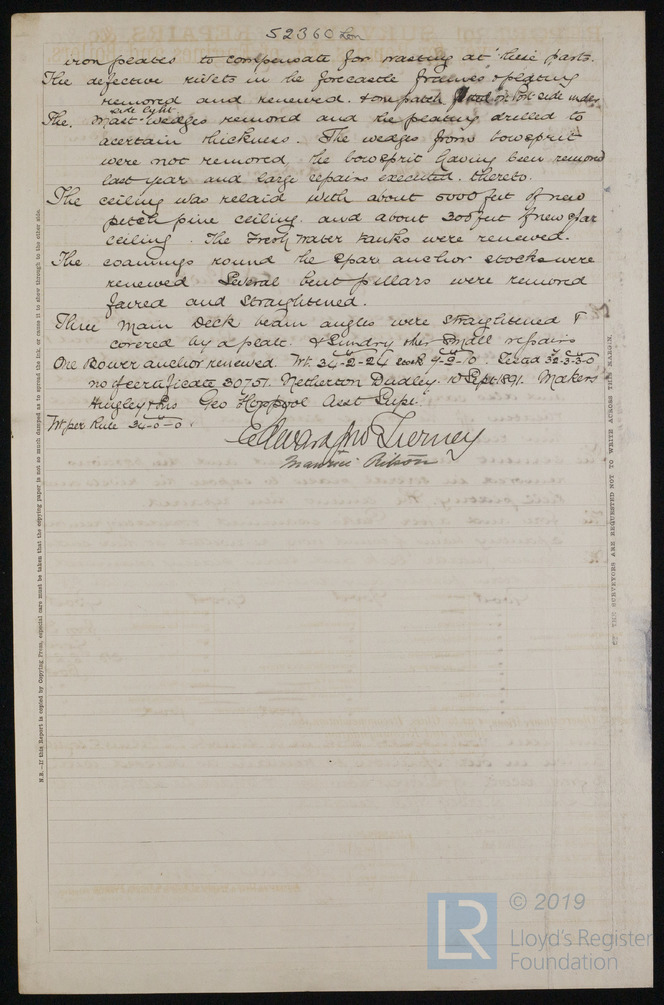 52360 Lon
iron plates to compensate for wasting at these parts.
The defective rivets in the forecastle frames & plating
removed and renewed. & one patch fitted on Port side under
side light.
The Mast Wedges removed and the plating drilled to
acertain thickness. The wedges from bowsprit
were not removed the bowsprit having been removed
last year and large repairs executed thereto.
The ceiling was relaid with about 5000 feet of new
pitch pine ceiling and about 300 feet of new spar
ceiling. The Fresh Water tanks were renewed.
The coamings round the Spar anchor stocks were
renewed Several bent pillars were removed
faired and straightened.
Three Main Deck beam angles were straightened &
covered by a plate. & Sundry other small repairs
One Bower anchor renewed. Wt. 34-2-24 stock 9-3-10. Tested 32-3-3-0
no of certificate 30757. Netherton Dudley. 10 Sept. 1891. Makers
Hingley & Sons Geo Hoppool Asst Supt.
Wt per Rule 34-0-0.
Edward Jno Tierney
Ritson
N.B.—If this Report is copied by Copying Press, especial care must be taken that the copying paper is not so much damped as to spread the ink, or cause it to show through to the other side.
THE SURVEYORS ARE REQUESTED NOT TO WRITE ACROSS THE MARGIN.
© 2019
LR
Lloyd's Register
Foundation